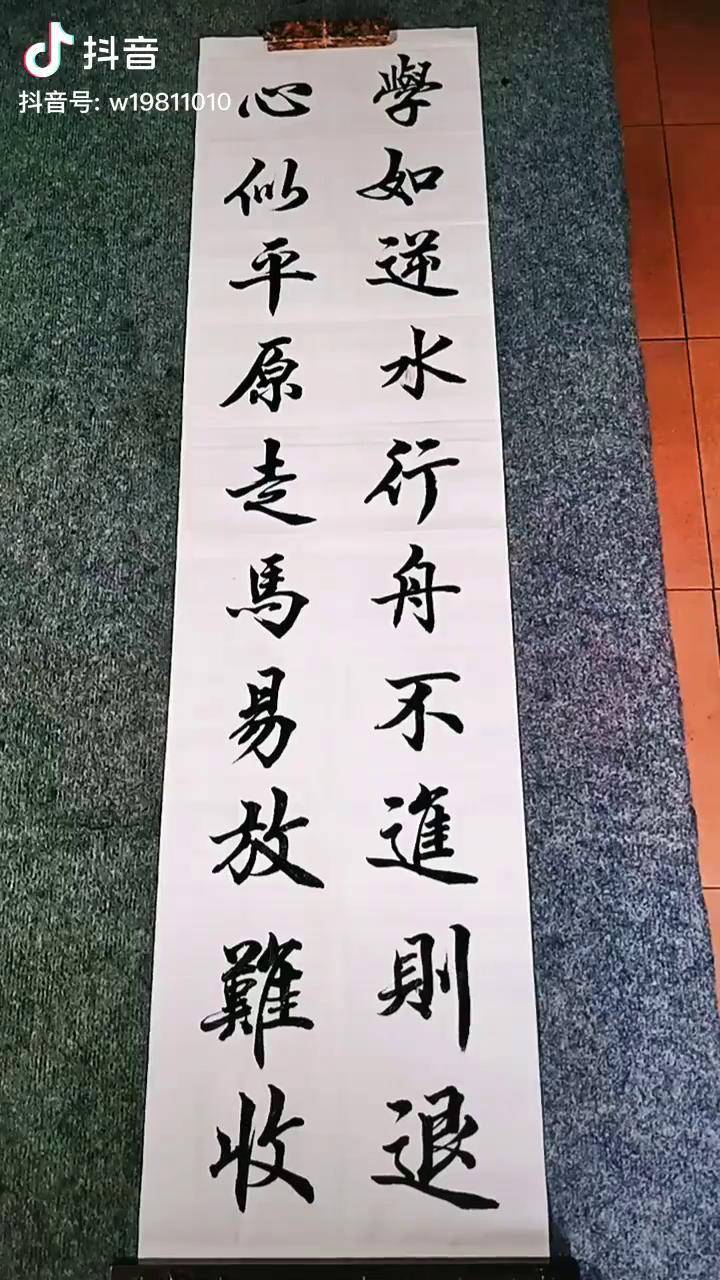 抖音
抖音号: w19811010
學如逆水行舟不進則退
心似平原走馬易放難收